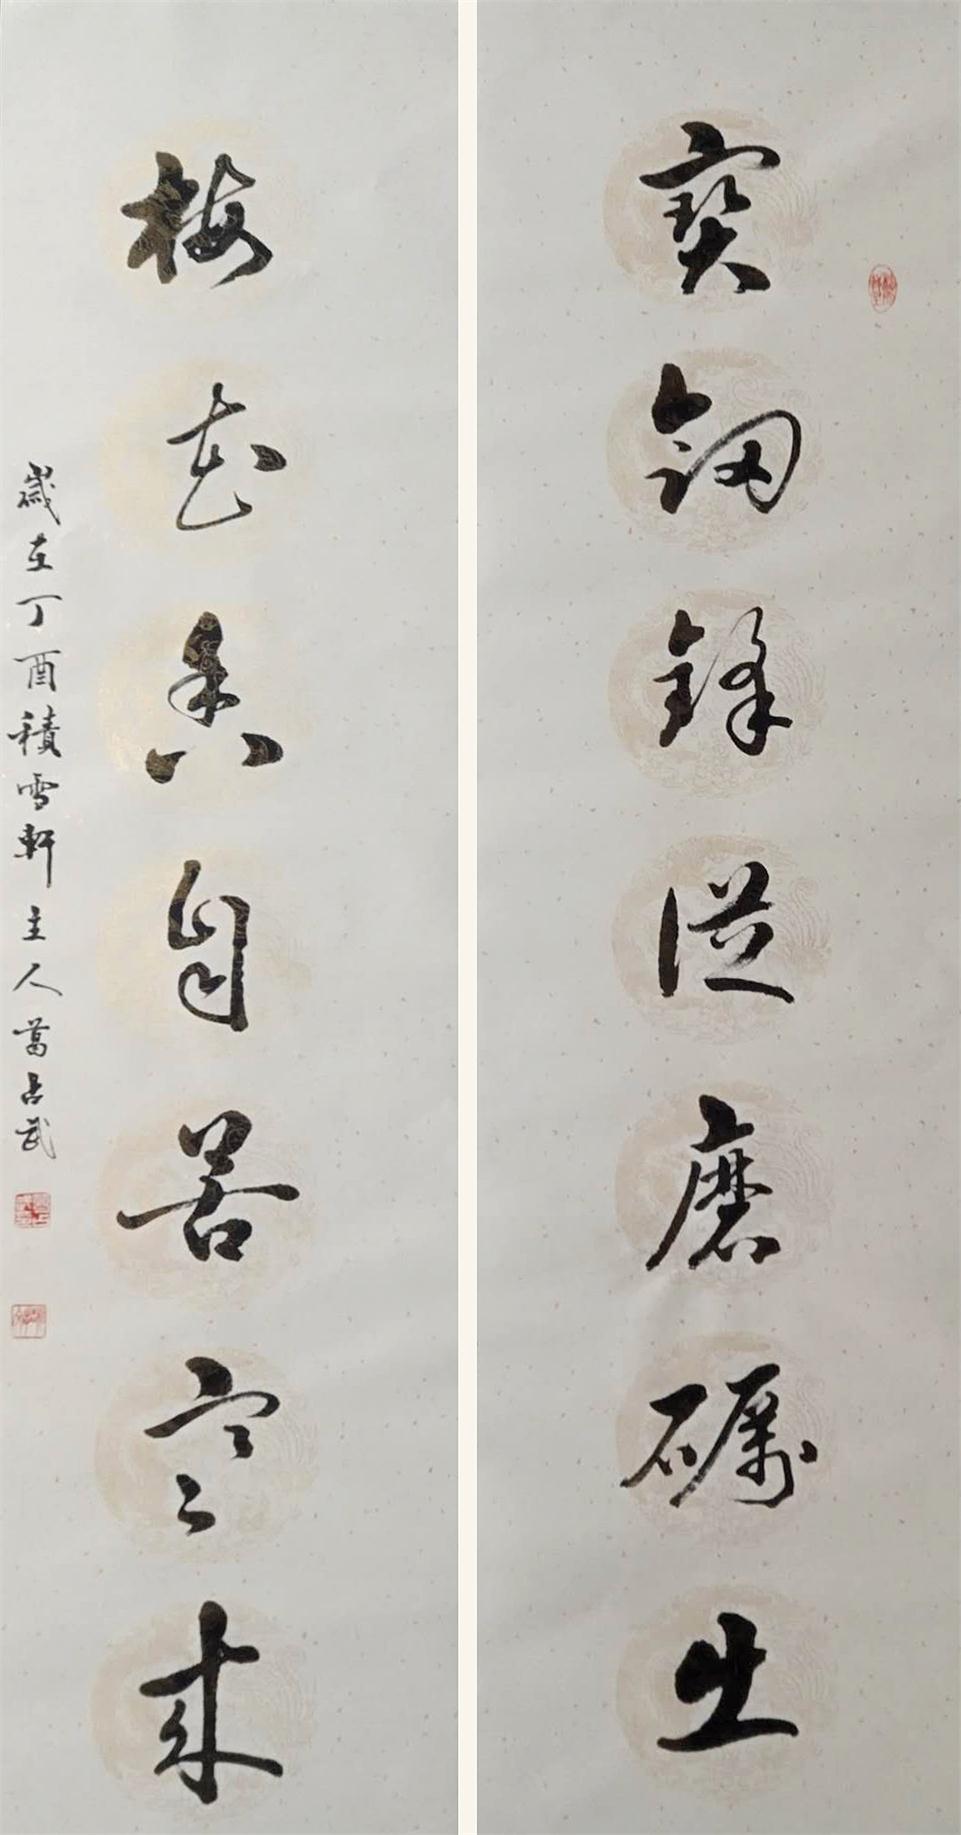 寶劒鋒從磨礪出
梅花香自苦寒來
歲在丁酉積雪軒主人葛占武